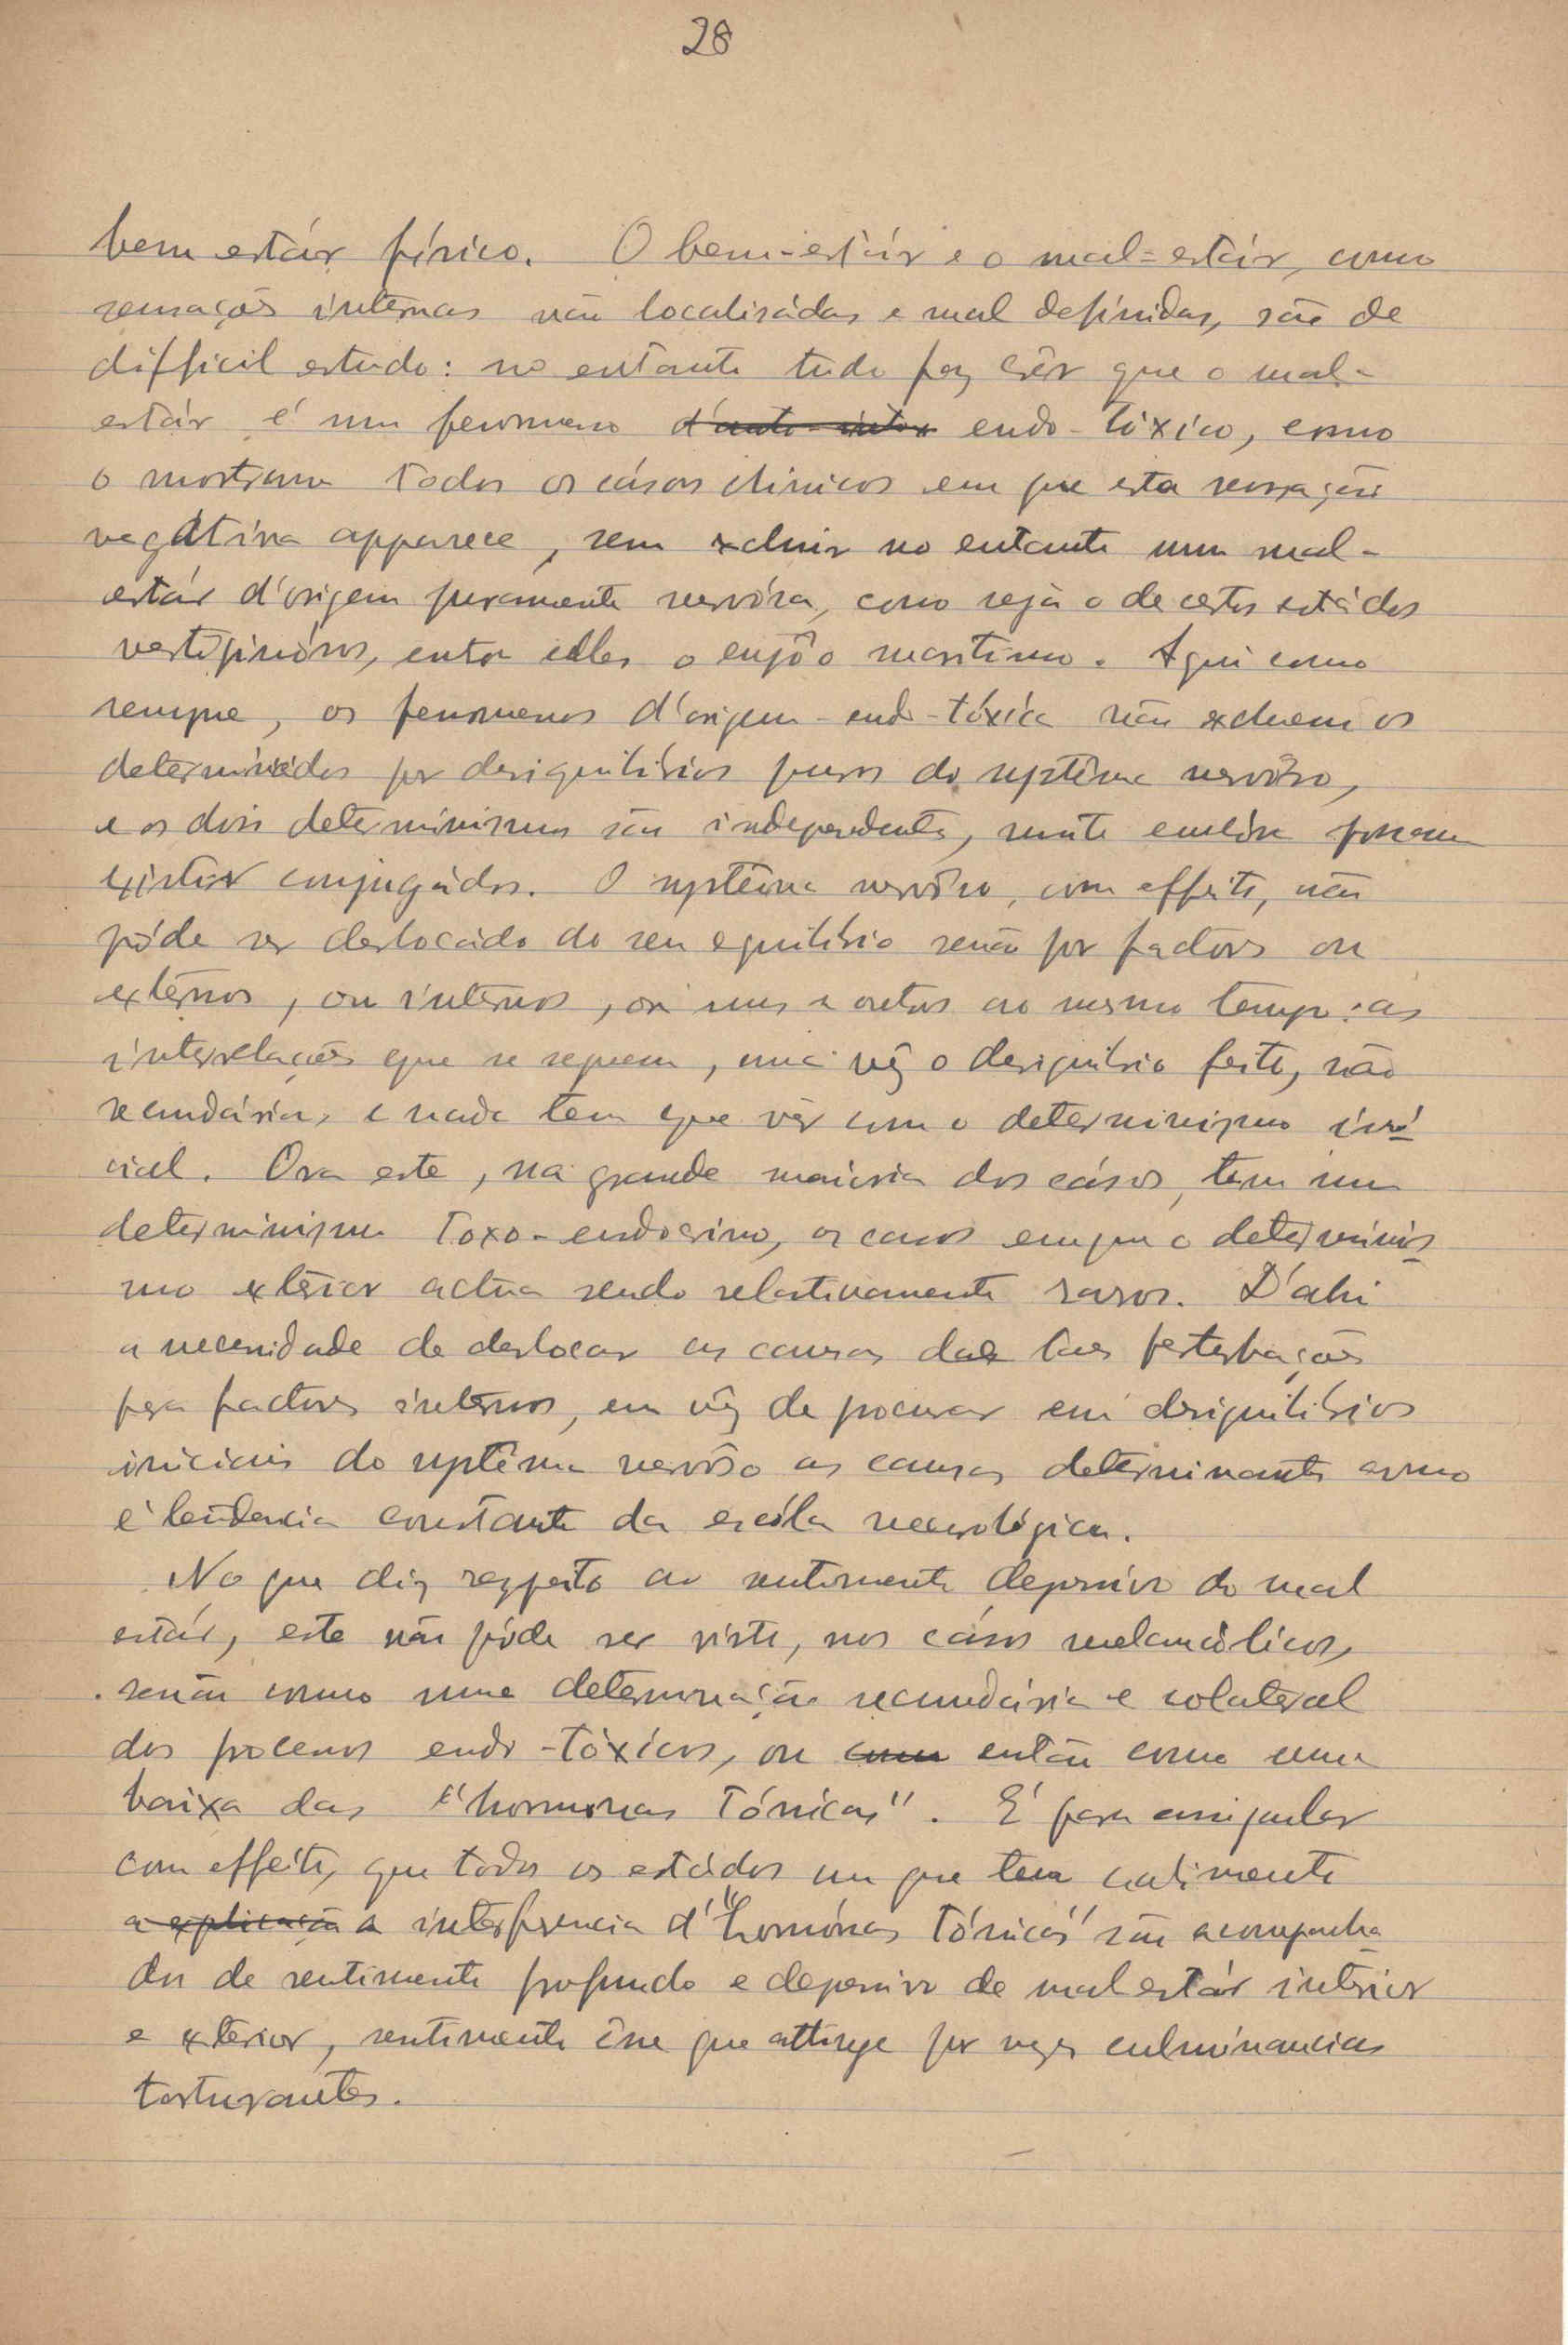 28
bem estár físico. O bem-estár e o mal-estár, como
sensações internas não localisádas e mal definidas, são de
difficil estudo: no entanto tudo faz crêr que o mal-
estár é um fenomeno d'auto-intox endo-tóxico, como
o mostram todos os cásos clinicos em que esta sensação
negátiva apparece, sem excluir no entanto um mal-
estár d'origem puramente nervósa, como seja o de certos estádos
vertiginósos, entre elles o enjôo maritimo. Aqui como
sempre, os fenomenos d'origem endo-tóxica não excluem os
determinádos por desiquilibrios puros do systêma nervôso,
e os dois determinismos são independentes, muito embóra possam
existir conjugádos. O systêma nervôso, com effeito, não
póde ser deslocádo do seu equilibrio senão por factores ou
extérnos, ou intérnos, ou uns e outros ao mesmo tempo: as
interrelações que se seguem, uma vêz o desiquilibrio feito, são
secundárias, e nada tem que vêr com o determinismo ini-
cial. Ora este, na grande maioria dos cásos, tem um
determinismo toxo-endocrino, os casos em que o determinis-
mo extérior actúa sendo relativamente raros. D'ahi
a necessidade de deslocar as causas das taes perturbações
para factores intérnos, em vêz de procurar em desiquilibrios
iniciais do systêma nervôso as causas determinantes como
é tendencia constante da escóla neurológica.
No que diz respeito ao sentimento depressivo do mal
estár, este não póde ser visto, nos cásos melancólicos,
senão como uma determinação secundária e colateral
dos processos endo-tóxicos, ou como então como uma
baixa das "hormonas tónicas". É para assignalar
com effeito, que todos os estádos em que tem cabimento
a explicação a interferencia d'"hormónas tónicas" são acompanha-
dos de sentimento profundo e depressivo de mal estár intérior
e extérior, sentimento êsse que attinge por vezes culminancias
torturantes.